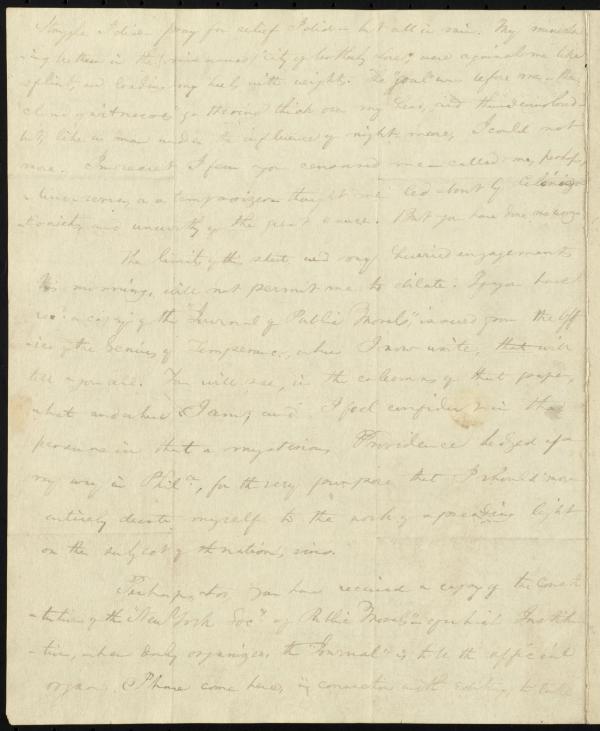 Struggle I did — pray for relief I did — but all in vain. My minister
-ing brethren in the (misnamed) "city of brotherly love," were against me like
and loading my heels with weights. The goal was before me — the
gathering thick over my head, and
but, like a man under the influence of night mare, I could not
move. I feared you censured me — called me, perhaps,
a temporizer — thought me led about by
and unworthy of the great cause. But you have done me wrong
The limits of this sheet and my hurried engagements
this morning, will not permit me to dilate. If you have
rec'd a copy of the "Journal of Public Morals," issued from the off
-ice of the Genius of Temperance, where I now write, that will
tell you all. You will see, in the columns of that paper,
what and where I am, and I feel confident in the
persuasion that a mysterious Providence hedged up
my way in Phila., for the very purpose that I should more
entirely devote myself to the work of spreading light
on the subject of the nation's sins.
Perhaps, too you have received a copy of the Consti
-tution of the "New York Socy. of Public Morals" — of which Institu
-tion, when duly organized, the "Journal" is to be the official
organ. I have come here, in connection with editing, to take